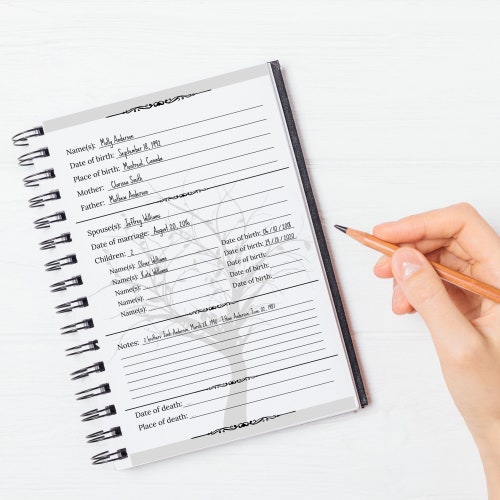 Name(s): Molly Anderson
Date of birth: September 18, 1992
Place of birth: Montreal, Canada
Mother: Clarissa Smith
Father: Matthew Anderson
Spouse(s): Jeffrey Williams
Date of marriage: August 20, 2016
Children: 2
Name(s): Olivia Williams Date of birth: 06 / 10 / 2018
Name(s): Kate Williams Date of birth:
Name(s): Date of birth:
Name(s): Date of birth:
Name(s): Date of birth:
Notes: 2 brothers: Josh Anderson, March 28, 1990 - Ethan Anderson, June 10, 1987
Date of death:
Place of death: